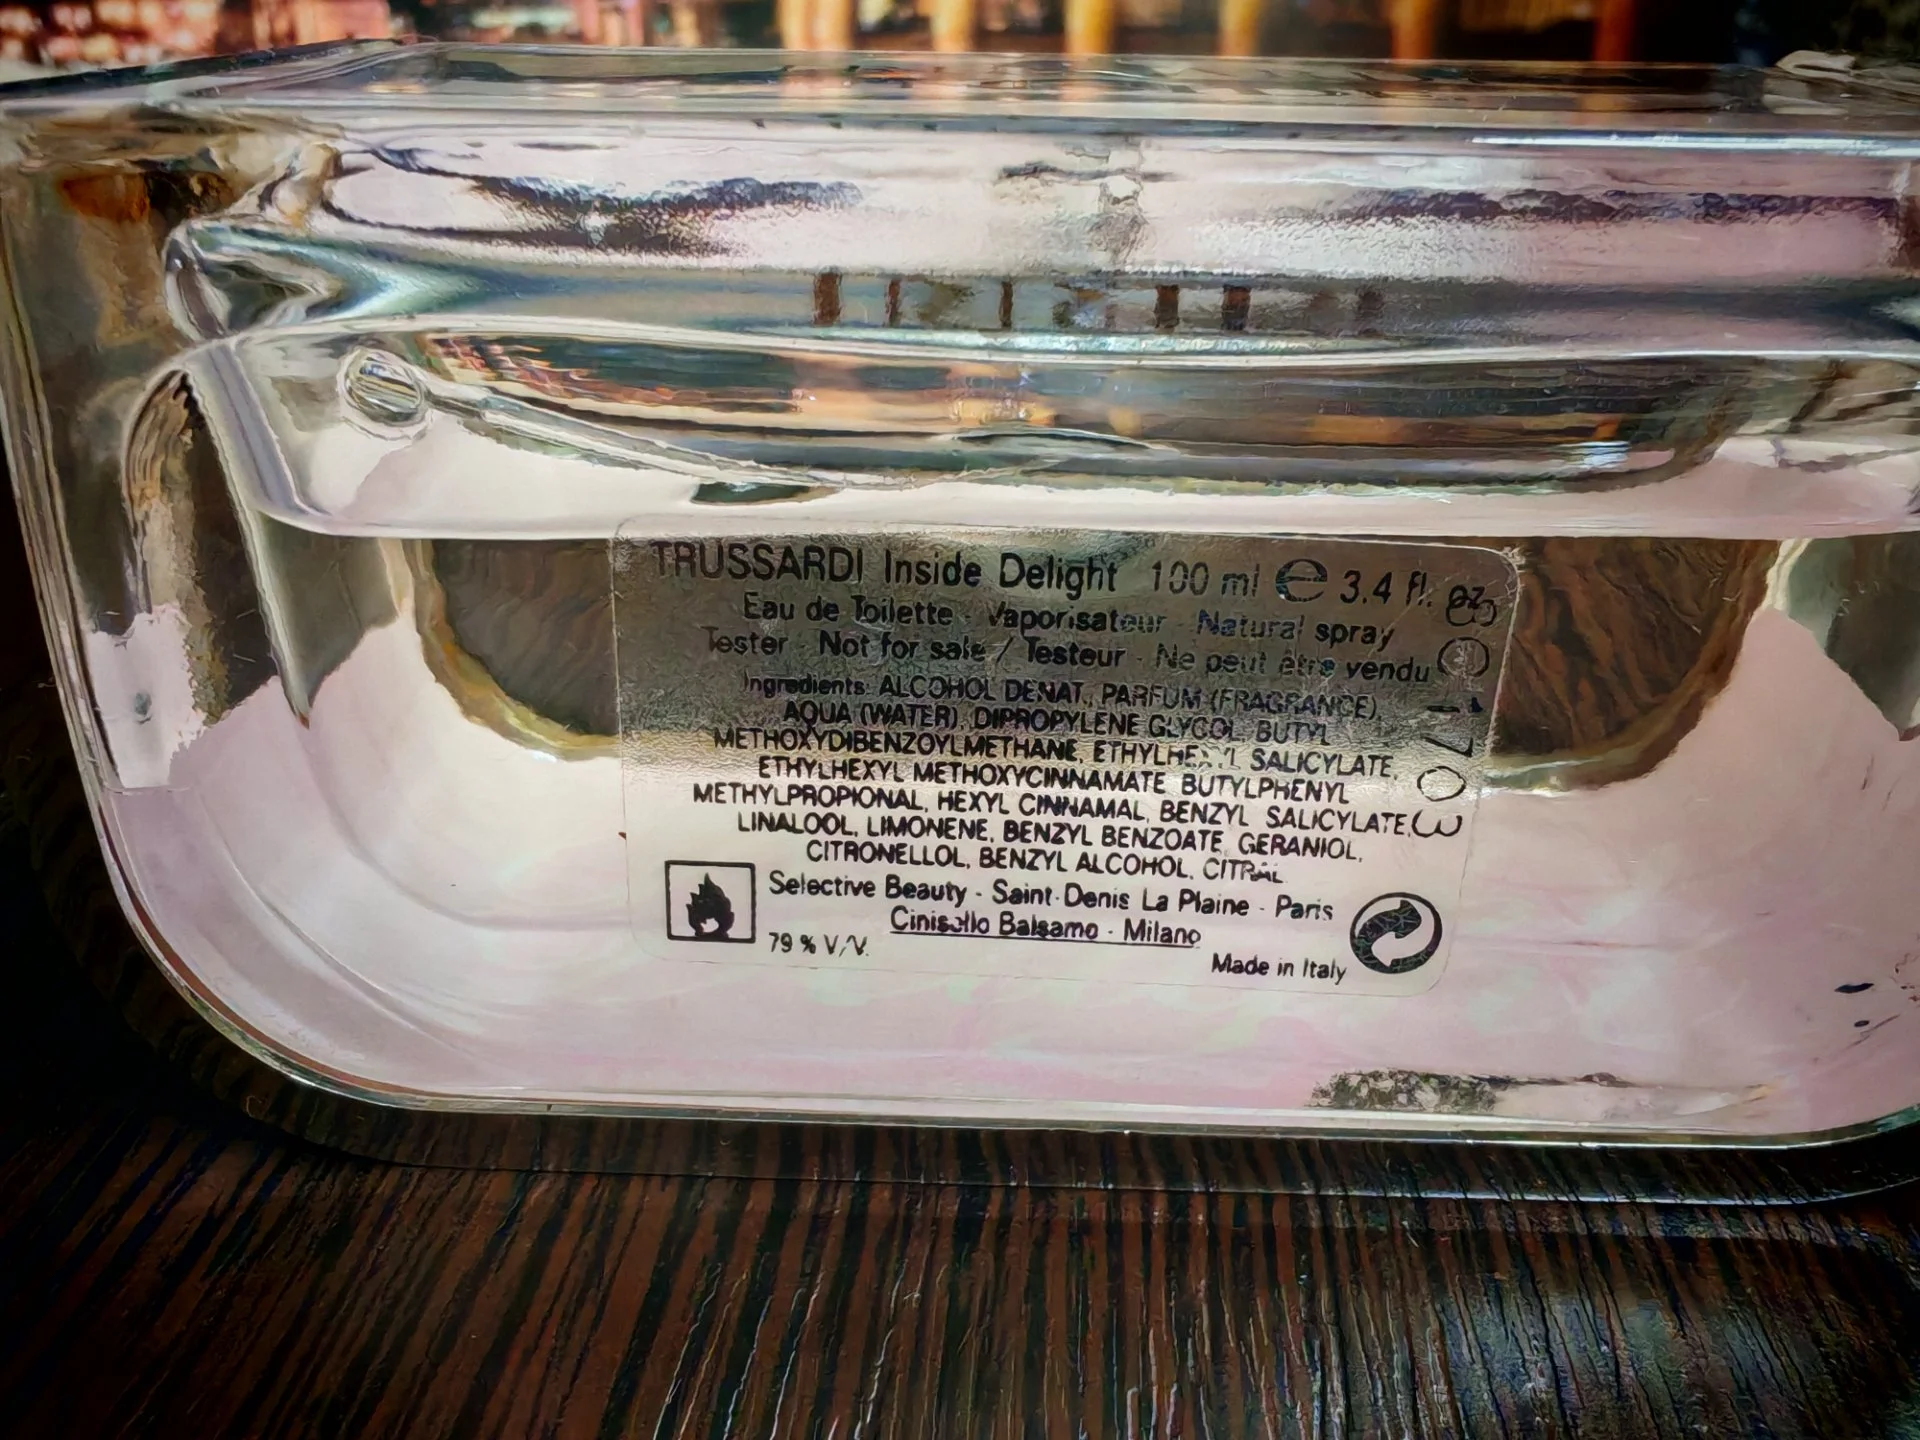 TRUSSARDI Inside Delight 100 ml ℮ 3.4 fl. oz
Eau de Toilette - Vaporisateur - Natural spray
Tester - Not for sale / Testeur - Ne peut être vendu
Ingredients: ALCOHOL DENAT., PARFUM (FRAGRANCE),
AQUA (WATER), DIPROPYLENE GLYCOL, BUTYL
METHOXYDIBENZOYLMETHANE, ETHYLHEXYL SALICYLATE,
ETHYLHEXYL METHOXYCINNAMATE BUTYLPHENYL
METHYLPROPIONAL, HEXYL CINNAMAL, BENZYL SALICYLATE,
LINALOOL, LIMONENE, BENZYL BENZOATE, GERANIOL,
CITRONELLOL, BENZYL ALCOHOL, CITRAL
Selective Beauty - Saint-Denis La Plaine - Paris
Cinisello Balsamo - Milano
79 % V/V.
Made in Italy